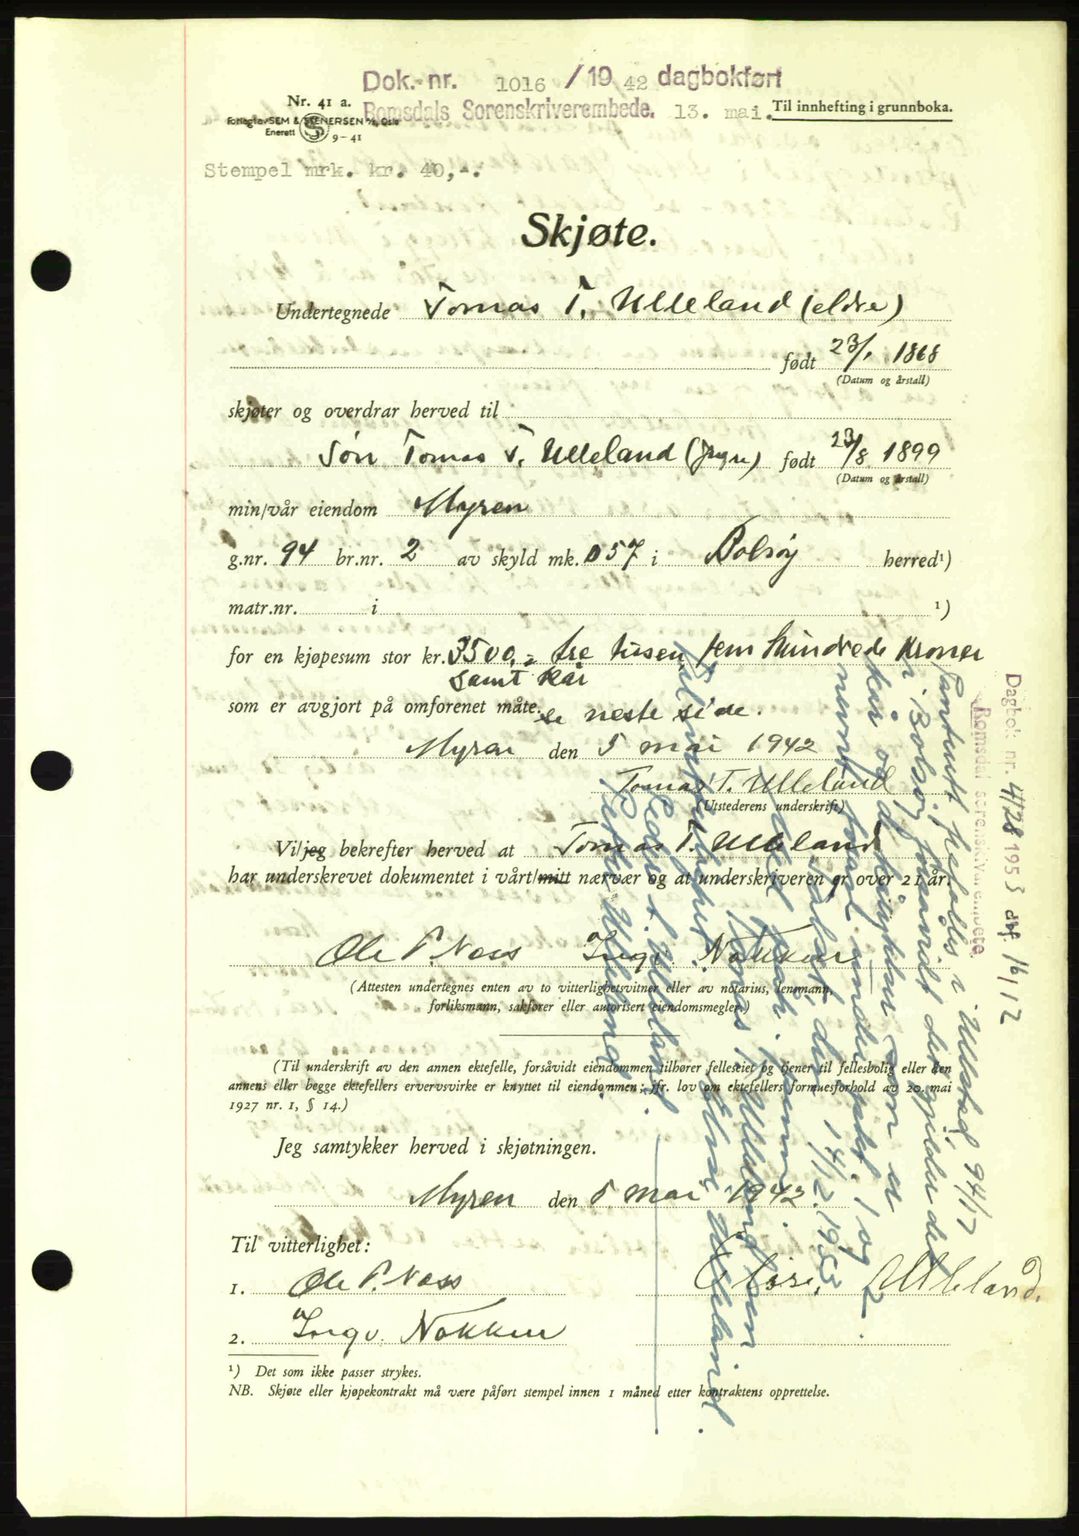 Dok. nr. 1016 / 1942 dagbokført
Nr. 41 a.
Romsdals Sorenskriverembede. 13. mai. Til innhefting i grunnboka.
Forlagt av SEM & STENERSEN A/S, Oslo
Enerett S 9–41
Stempel mrk. kr. 40,-.
Skjøte.
Undertegnede Tomas T. Ulleland (eldre)
født 23/1 1868
(Datum og årstall)
skjøter og overdrar herved til
Søn Tomas T. Ulleland (yngre) født 23/8 1899
(Datum og årstall)
min/vår eiendom Myren
g.nr. 94 br.nr. 2 av skyld mk. 057 i Bolsøy herred¹)
matr.nr. i ¹)
for en kjøpesum stor kr. 3500,= tre tusen fem hundrede kroner
samt kår
som er avgjort på omforenet måte. se neste side.
Myren den 5 mai 1942
Tomas T. Ulleland
(Utstederens underskrift)
Vi/jeg bekrefter herved at Tomas T. Ulleland
har underskrevet dokumentet i vårt/mitt nærvær og at underskriveren er over 21 år.
Ole P. Næss Ingv. Nakken
(Attesten undertegnes enten av to vitterlighetsvitner eller av notarius, lensmann,
forliksmann, sakfører eller autorisert eiendomsmegler.)
(Til underskrift av den annen ektefelle, forsåvidt eiendommen tilhører felleseiet og tjener til fellesbolig eller den
annens eller begge ektefellers ervervsvirke er knyttet til eiendommen; jfr. lov om ektefellers formuesforhold av 20. mai
1927 nr. 1, § 14.)
Jeg samtykker herved i skjøtningen.
Myren den 5 mai 1942.
Til vitterlighet:
1. Ole P. Næss
Ulleland.
2. Ingv. Nakken
¹) Det som ikke passer strykes.
NB. Skjøte eller kjøpekontrakt må være påført stempel innen 1 måned etter kontraktens opprettelse.
Dagbok nr. 4128 1953 dbf. 16/12
Romsdal sorenskriverembete
Pantfrit i Ullstad 94/17
i Bolsøy det gjelder det
kår og som er
nevnt foran under pkt. 1 og 2.
Bolsøy, den 14/12.1953
Tomas T. Ulleland sen
Elise Ulleland.
Peder Ulleland.